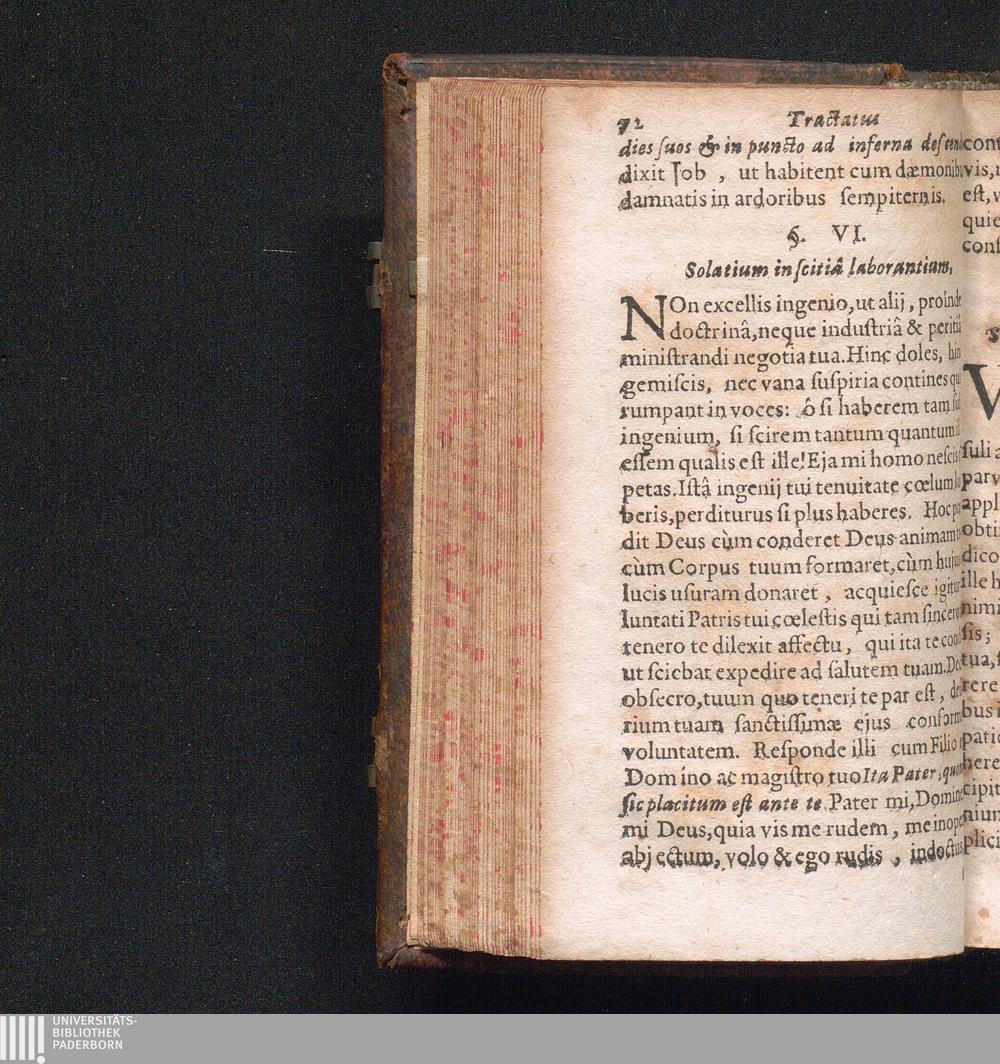 72 Tractatus
dies suos & in puncto ad inferna descend
dixit Job , ut habitent cum dæmonib
damnatis in ardoribus sempiternis.
§. VI.
Solatium inscitiâ laborantium,
NOn excellis ingenio, ut alij , proinde
doctrinâ, neque industriâ & peritiâ
ministrandi negotia tua. Hinc doles, hin
gemiscis, nec vana suspiria contines qu
rumpant in voces: ô si haberem tam
ingenium, si scirem tantum quantum
essem qualis est ille! Eja mi homo nescis
petas. Istâ ingenij tui tenuitate cœlum
beris, perditurus si plus haberes. Hoc
dit Deus cùm conderet Deus animam
cùm Corpus tuum formaret, cùm hujus
lucis usuram donaret , acquiesce igitur
luntati Patris tui cœlestis qui tam sincero
tenero te dilexit affectu, qui ita te con
ut sciebat expedire ad salutem tuam. De
obsecro, tuum quo teneri te par est , de
rium tuam sanctissimæ ejus conform
voluntatem. Responde illi cum Filio
Domino ac magistro tuo Ita Pater, quon
sic placitum est ante te. Pater mi, Domine
mi Deus, quia vis me rudem, me inope
abjectum, volo & ego rudis , indoctus
cont
vis,
est, v
quie
conf
S
V
suli a
parv
appl
obti
dico
ille h
nimi
sis;
tua, s
rere
bus i
patie
here
cipit
niun
plici
UNIVERSITÄTS-
BIBLIOTHEK
PADERBORN